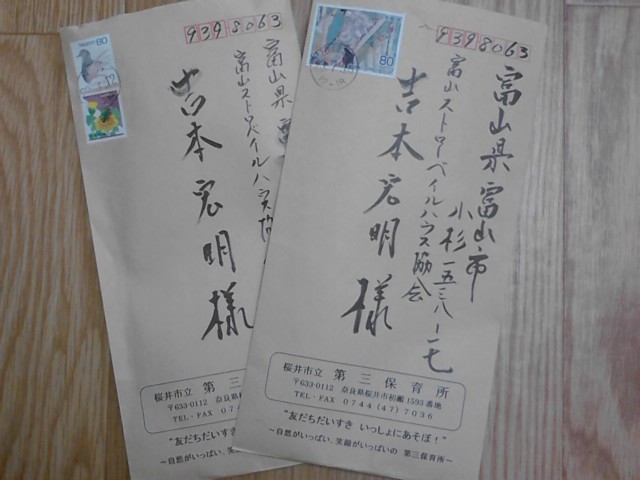 9398063
富山県
富山ストローベイルハウス協
吉本宏明様
桜井市立 第三
〒633-0112 奈良県桜
TEL・FAX 07
"友だちだいすき いっしょに
～自然がいっぱい、笑顔がいっぱ
80
9398063
富山県富山市
小杉一五三八ー一七
富山ストローベイルハウス協会
吉本宏明様
80
桜井市立 第三保育所
〒633-0112 奈良県桜井市初瀬1593番地
TEL・FAX 0744(47)7036
"友だちだいすき いっしょにあそぼ!"
～自然がいっぱい、笑顔がいっぱいの 第三保育所～